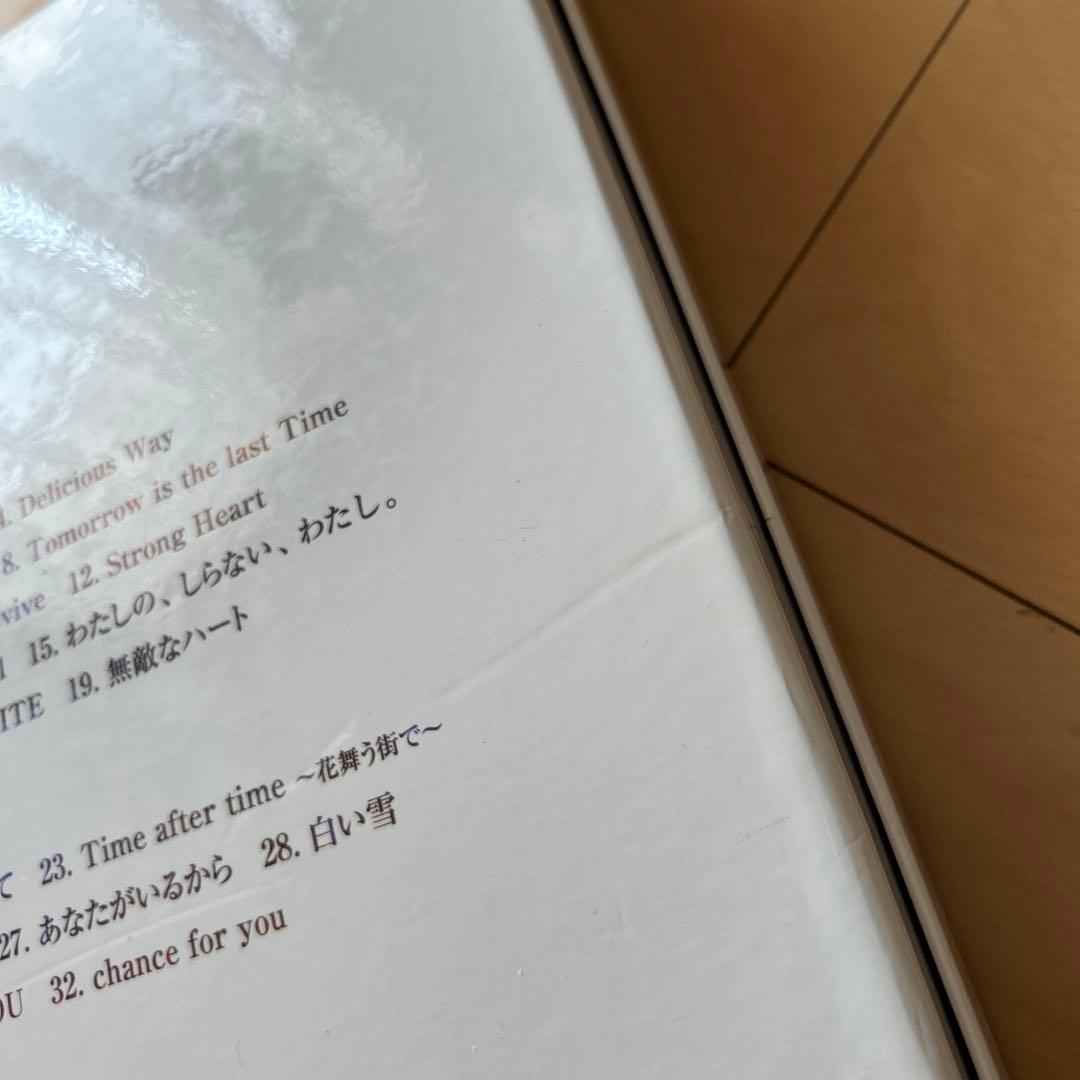 4. Delicious Way
8. Tomorrow is the last Time
vive 12. Strong Heart
15. わたしの、しらない、わたし。
ITE 19. 無敵なハート
て 23. Time after time ～花舞う街で～
27. あなたがいるから 28. 白い雪
OU 32. chance for you